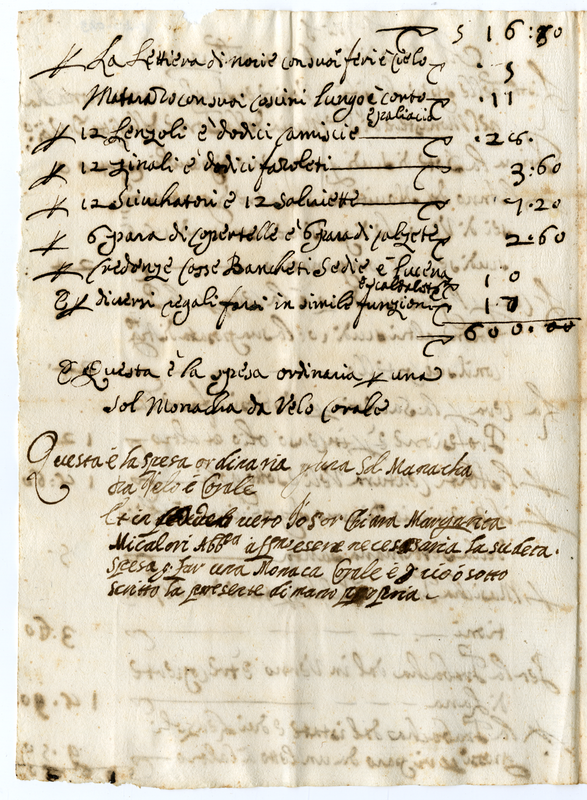 516:80
La Lettiera di nocie con suoi feri è cielo 5
Matarazo con suoi cosini lungo è corto 11
è paliacia
12 Lenzoli è dodici camiscie 28.
12 Zinali è dodici fazoleti 3:60
12 Sciuchatori è 12 salviette 7.20
6 para di copertelle è 6 para di calzete 2.60
Credenze Casse Bancheti Sedie è Lucerna 10
è scaldaleto
E diversi regali farsi in simile funzioni 10
600.00
E Questa è la spesa ordinaria una
sol Monacha da Velo Corale
Questa è la spesa ordinaria una Sol Monacha
da Velo è Corale
Et in fede del vero Io Sor Chiara Margarita
Micalori Abb.a esere necessaria la sudeta
spesa far una Monaca Corale è ciò ò sotto
scritto la presente di mano propria